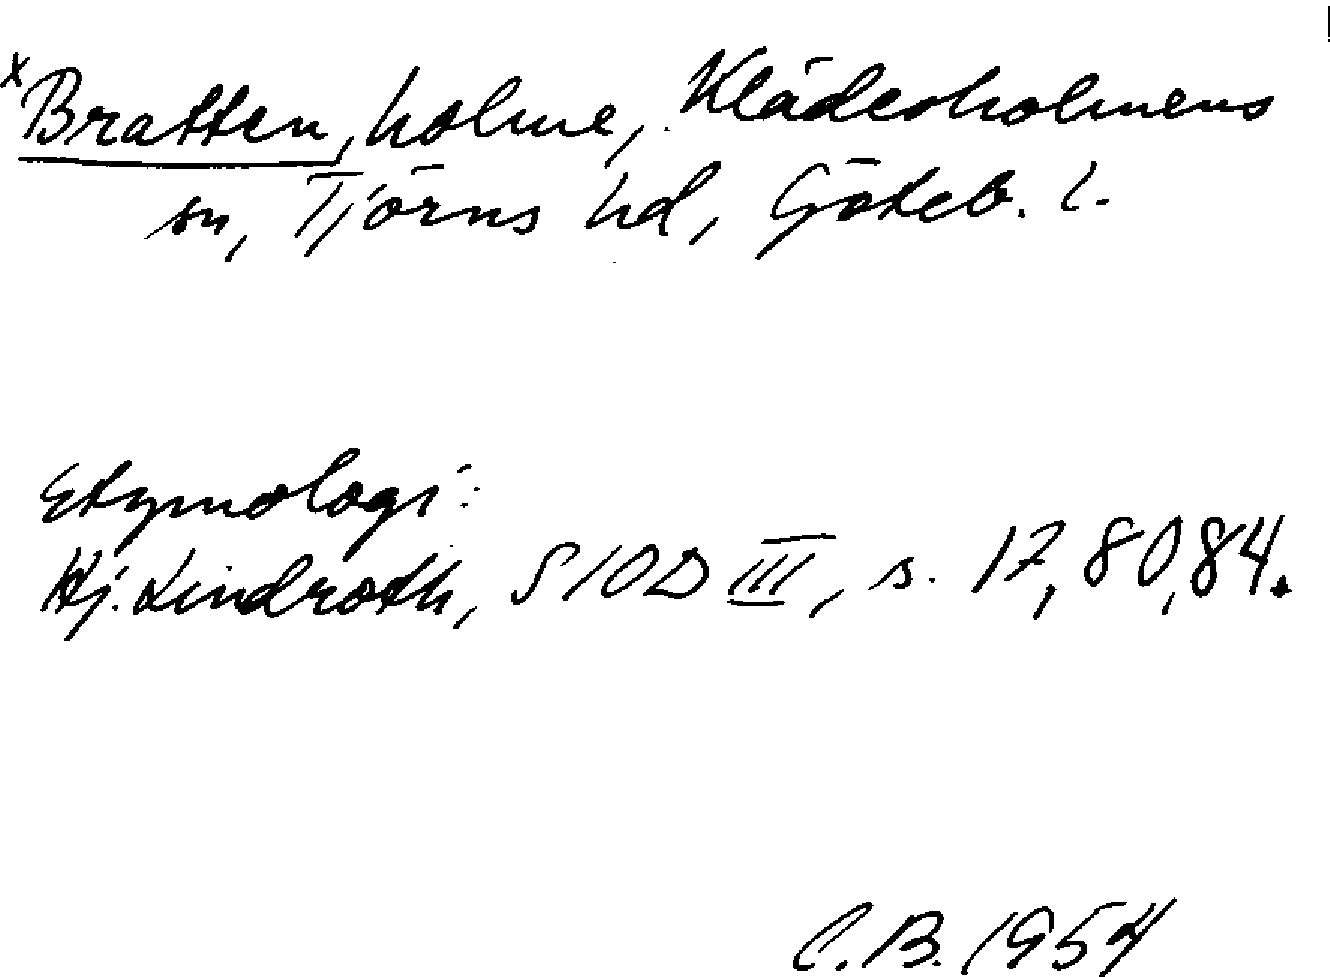 x Bratten, holme, Klädesholmens
sn, Tjörns hd, Göteb. l.
Etymologi:
Hj. Lindroth, SIOD III, s. 17, 80, 84.
C.B. 1954